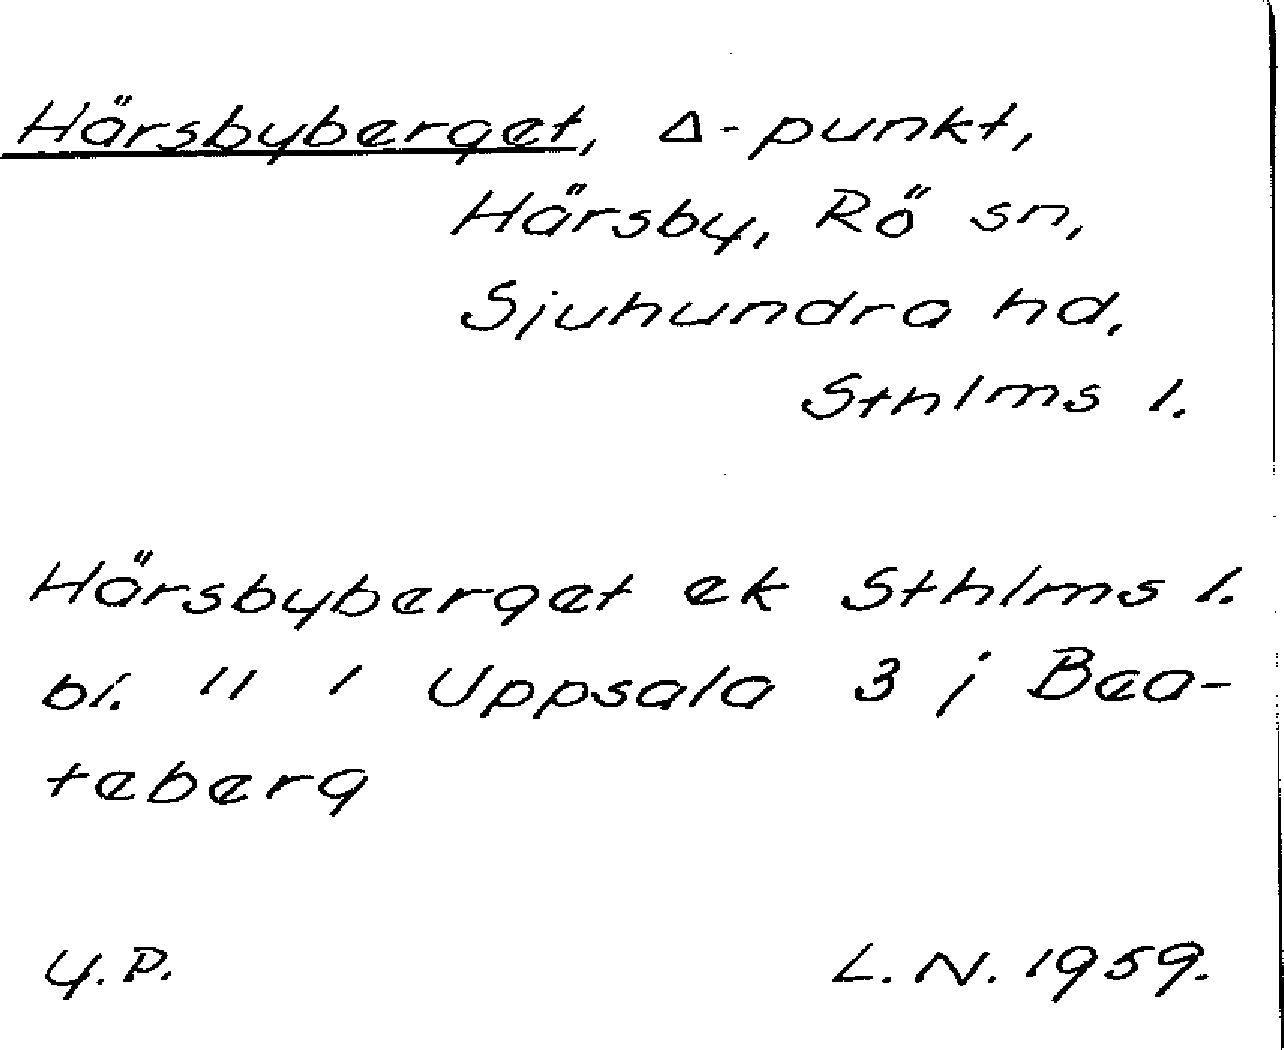 Härsbyberget, Δ-punkt,
Härsby, Rö sn,
Sjuhundra hd.
Sthlms l.
Härsbyberget ek Sthlms l.
bl. 11 1 Uppsala 3 j Bea-
teberg
Y.P.
L.N. 1959.